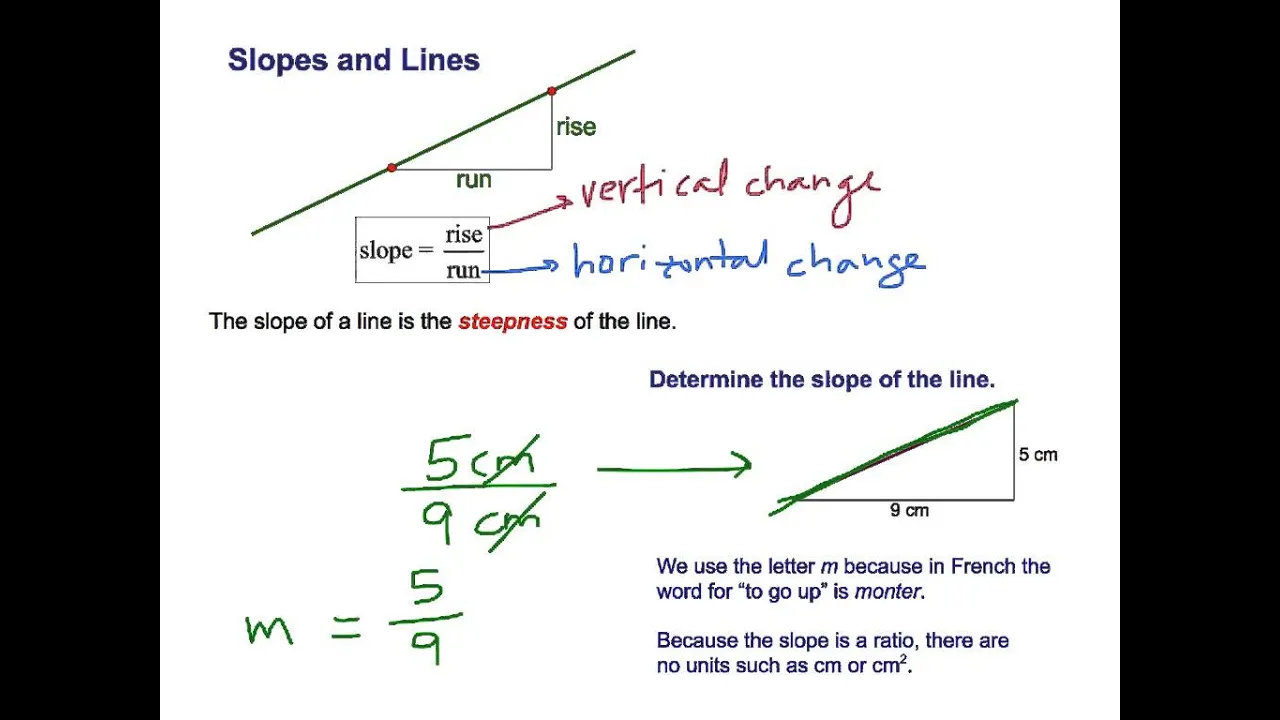 Slopes and Lines
rise
run
vertical change
slope = rise/run
horizontal change
The slope of a line is the steepness of the line.
Determine the slope of the line.
5 cm
9 cm
5 cm
9 cm
We use the letter m because in French the
word for "to go up" is monter.
m = 5/9
Because the slope is a ratio, there are
no units such as cm or cm².